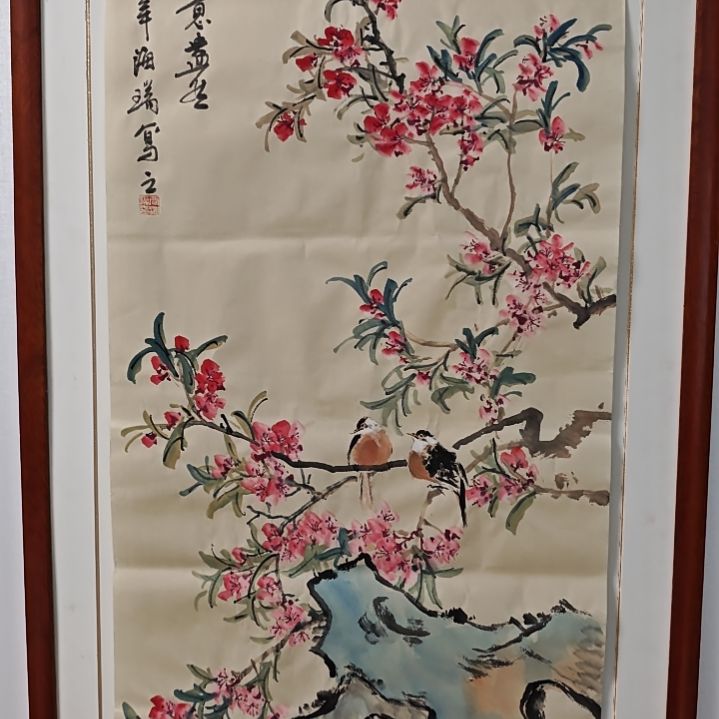 意盎然
海瑞寫之